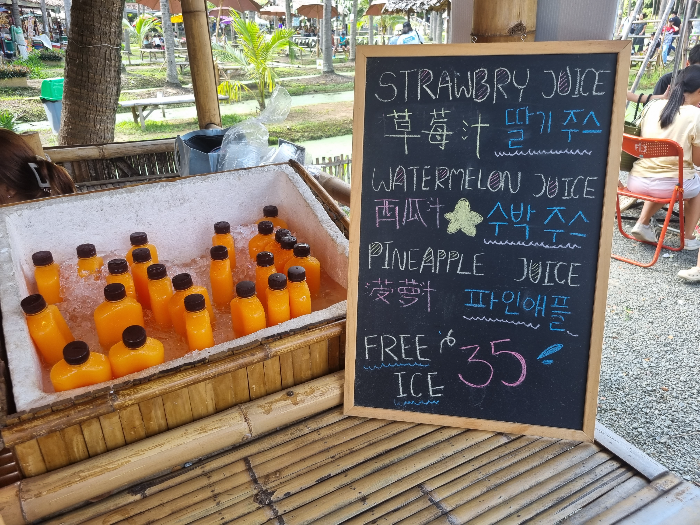 STRAWBRY JUICE
草莓汁 딸기 주스
WATERMELON JUICE
西瓜汁 수박 주스
PINEAPPLE JUICE
菠萝汁 파인애플
FREE
ICE 35